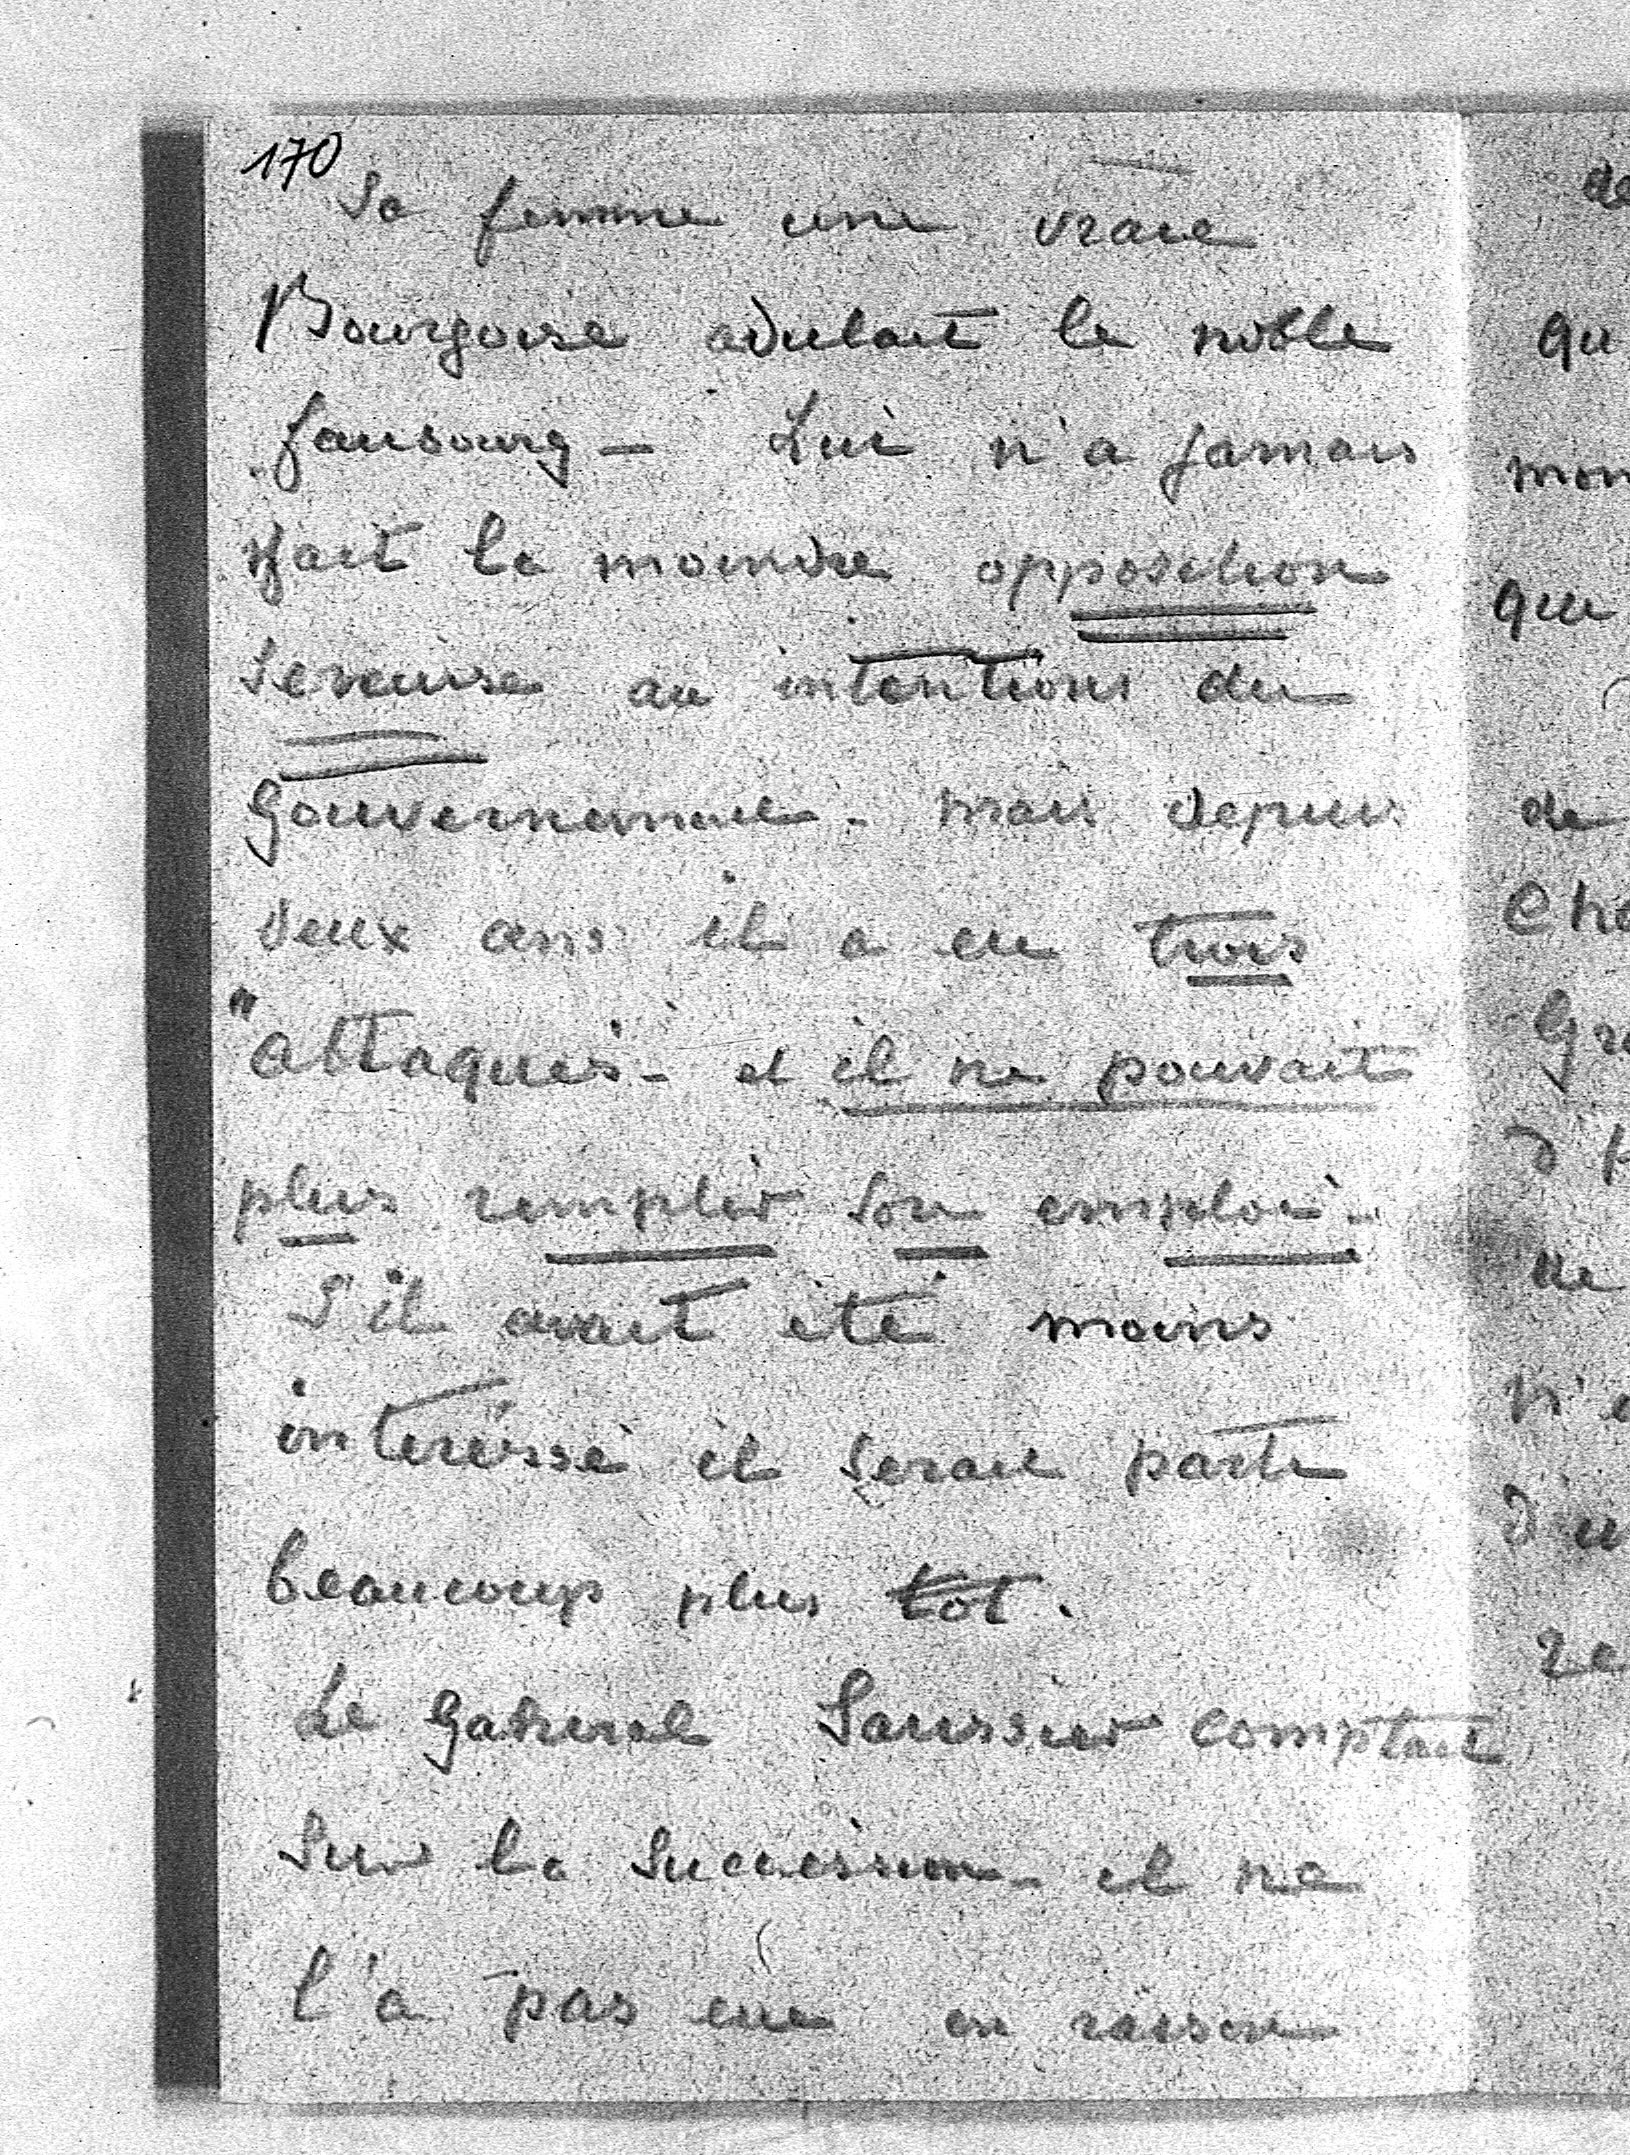 170
Sa femme une vraie
Bourgoise adulait le noble
faubourg - Lui n'a jamais
fait la moindre opposition
serieuse au intentions du
Gouvernement - mais depuis
deux ans il a eu trois
"attaques - et il ne pouvait
plus remplir son emploi -
S'il avait été moins
interéssé il serait parti
beaucoup plus tot.
Le Général Saussier comptait
sur la Succession - il ne
l'a pas eue en raison
de
qu
mon
que
de
Che
Gra
de
n'a
d'u
re